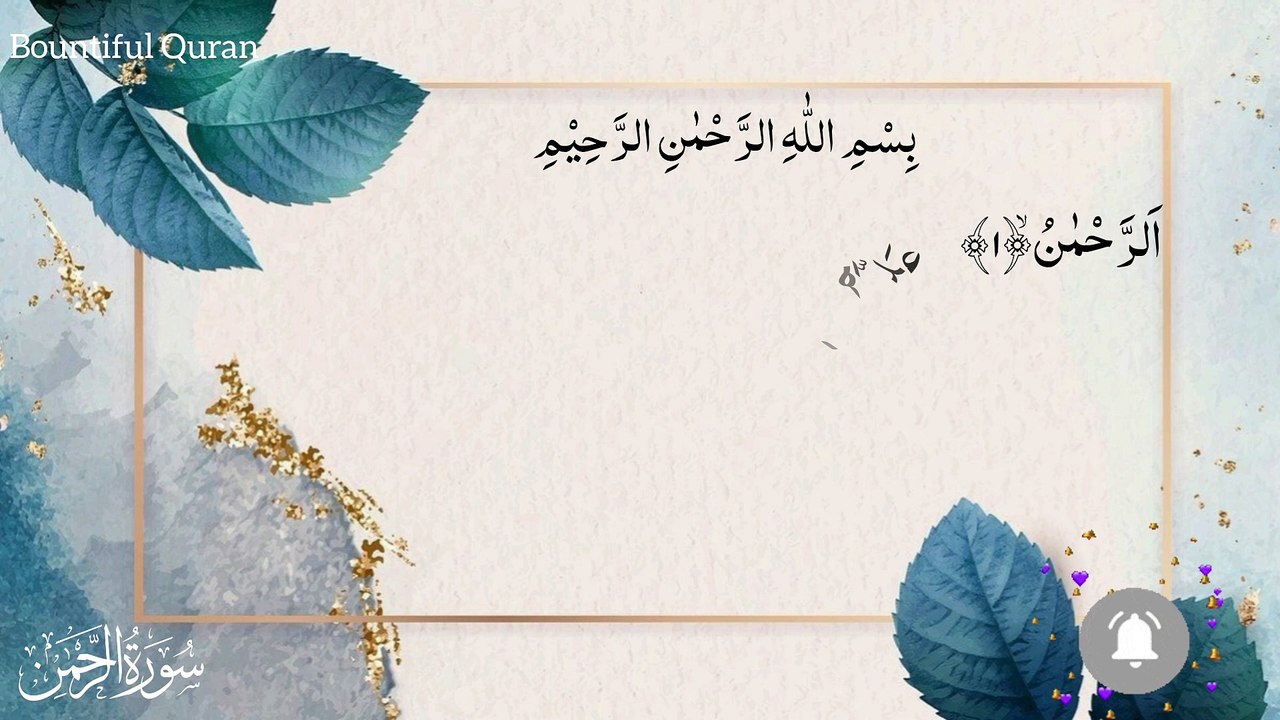 Bountiful Quran
بِسْمِ اللّٰهِ الرَّحْمٰنِ الرَّحِیْمِ
اَلرَّحْمٰنُۙ﴿۱﴾
سُورَةُ الرَّحْمٰن